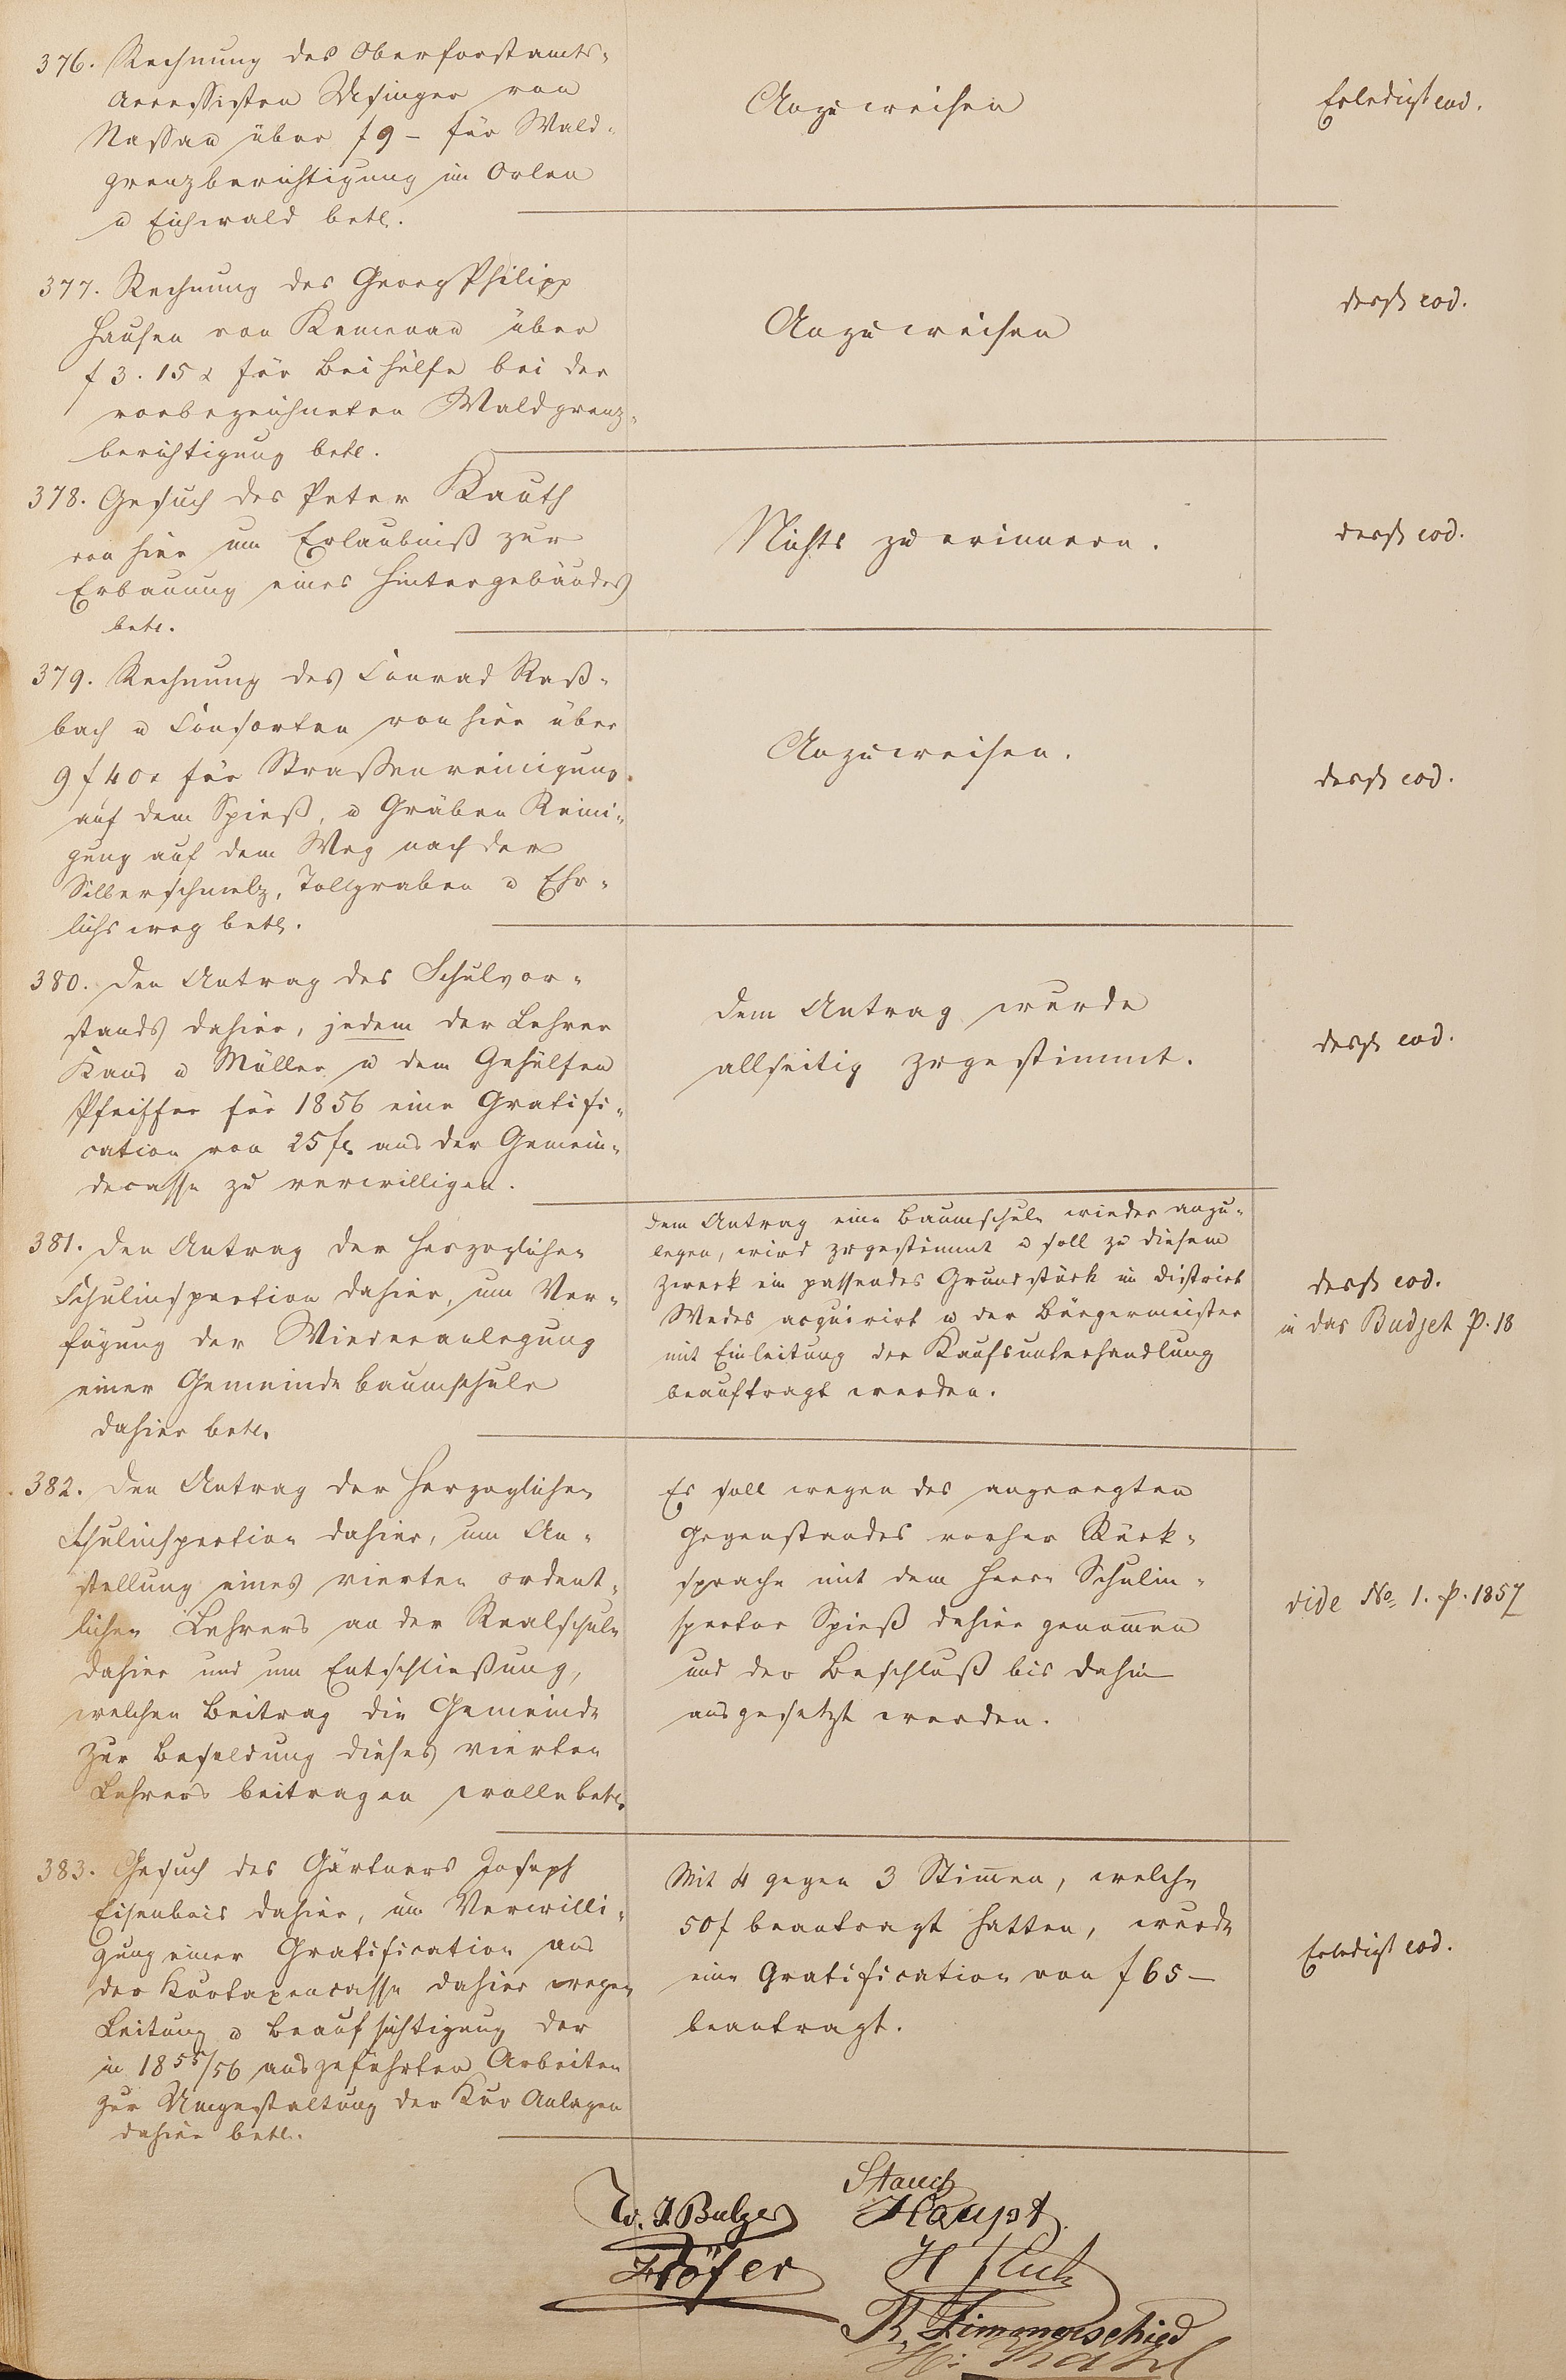 376. Rechnung des Oberforstamts-
Accessisten Usinger von
Nassau über f 9 - für Wald-
grenzberichtigung im Orlen
u Eichwald betr.
Anzuweisen
Erledigt eod.
377. Rechnung des Georg Philipp
Hausen von Kemenau über
f 3. 15 x für Beihülfe bei der
vorbezeichneten Waldgrenz-
berichtigung betr.
Anzuweisen
desgl. eod.
378. Gesuch des Peter Kauth
von hier um Erlaubniß zur
Erbauung eines Hintergebäudes
betr.
Nichts zu erinnern.
desgl. eod.
379. Rechnung des Conrad Raß-
bach u Consorten von hier über
9 f 40 x für Strassenreinigung
auf dem Spieß, u Gräben Reini-
gung auf dem Weg nach der
Silberschmelz, Tollgraben u Ehr-
lichsweg betr.
Anzuweisen.
desgl. eod.
380. Den Antrag des Schulvor-
stands dahier, jedem der Lehrer
Kaus u Müller u dem Gehülfen
Pfeiffer für 1856 eine Gratifi-
cation von 25 fl. aus der Gemein-
decasse zu verwilligen.
Dem Antrag wurde
allseitig zugestimmt.
desgl. eod.
381. Den Antrag der Herzoglichen
Schulinspection dahier, um Ver-
fügung der Wiederanlegung
einer Gemeindebaumschule
dahier betr.
Dem Antrag eine Baumschule wieder anzu-
legen, wird zugestimmt u soll zu diesem
Zweck ein passendes Grundstück im District
Wedes acquirirt u der Bürgermeister
mit Einleitung der Kaufsunterhandlung
beauftragt werden.
desgl. eod.
in das Budjet p. 18
382. Den Antrag der Herzoglichen
Schulinspection dahier, um An-
stellung eines vierten ordent-
lichen Lehrers an der Realschule
dahier und um Entschließung,
welchen Beitrag die Gemeinde
zur Besoldung dieses vierten
Lehrers beitragen wolle betr.
Es soll wegen des angeregten
Gegenstandes vorher Rück-
sprache mit dem Herrn Schulin-
spector Spieß dahier genommen
und der Beschluß bis dahin
ausgesetzt werden.
vide No 1. p. 1857
383. Gesuch des Gärtners Joseph
Eisenbeis dahier, um Verwilli-
gung einer Gratification aus
der Kurtaxencasse dahier wegen
Leitung u Beaufsichtigung der
in 1855/56 ausgeführten Arbeiten
zur Umgestaltung der Kur Anlagen
dahier betr.
Mit 4 gegen 3 Stimmen, welche
50 f beantragt hatten, wurde
eine Gratification von f 65 -
beantragt.
Erledigt eod.
Stauch
W. J. Balzer Haupt
H
R. Zimmerschied